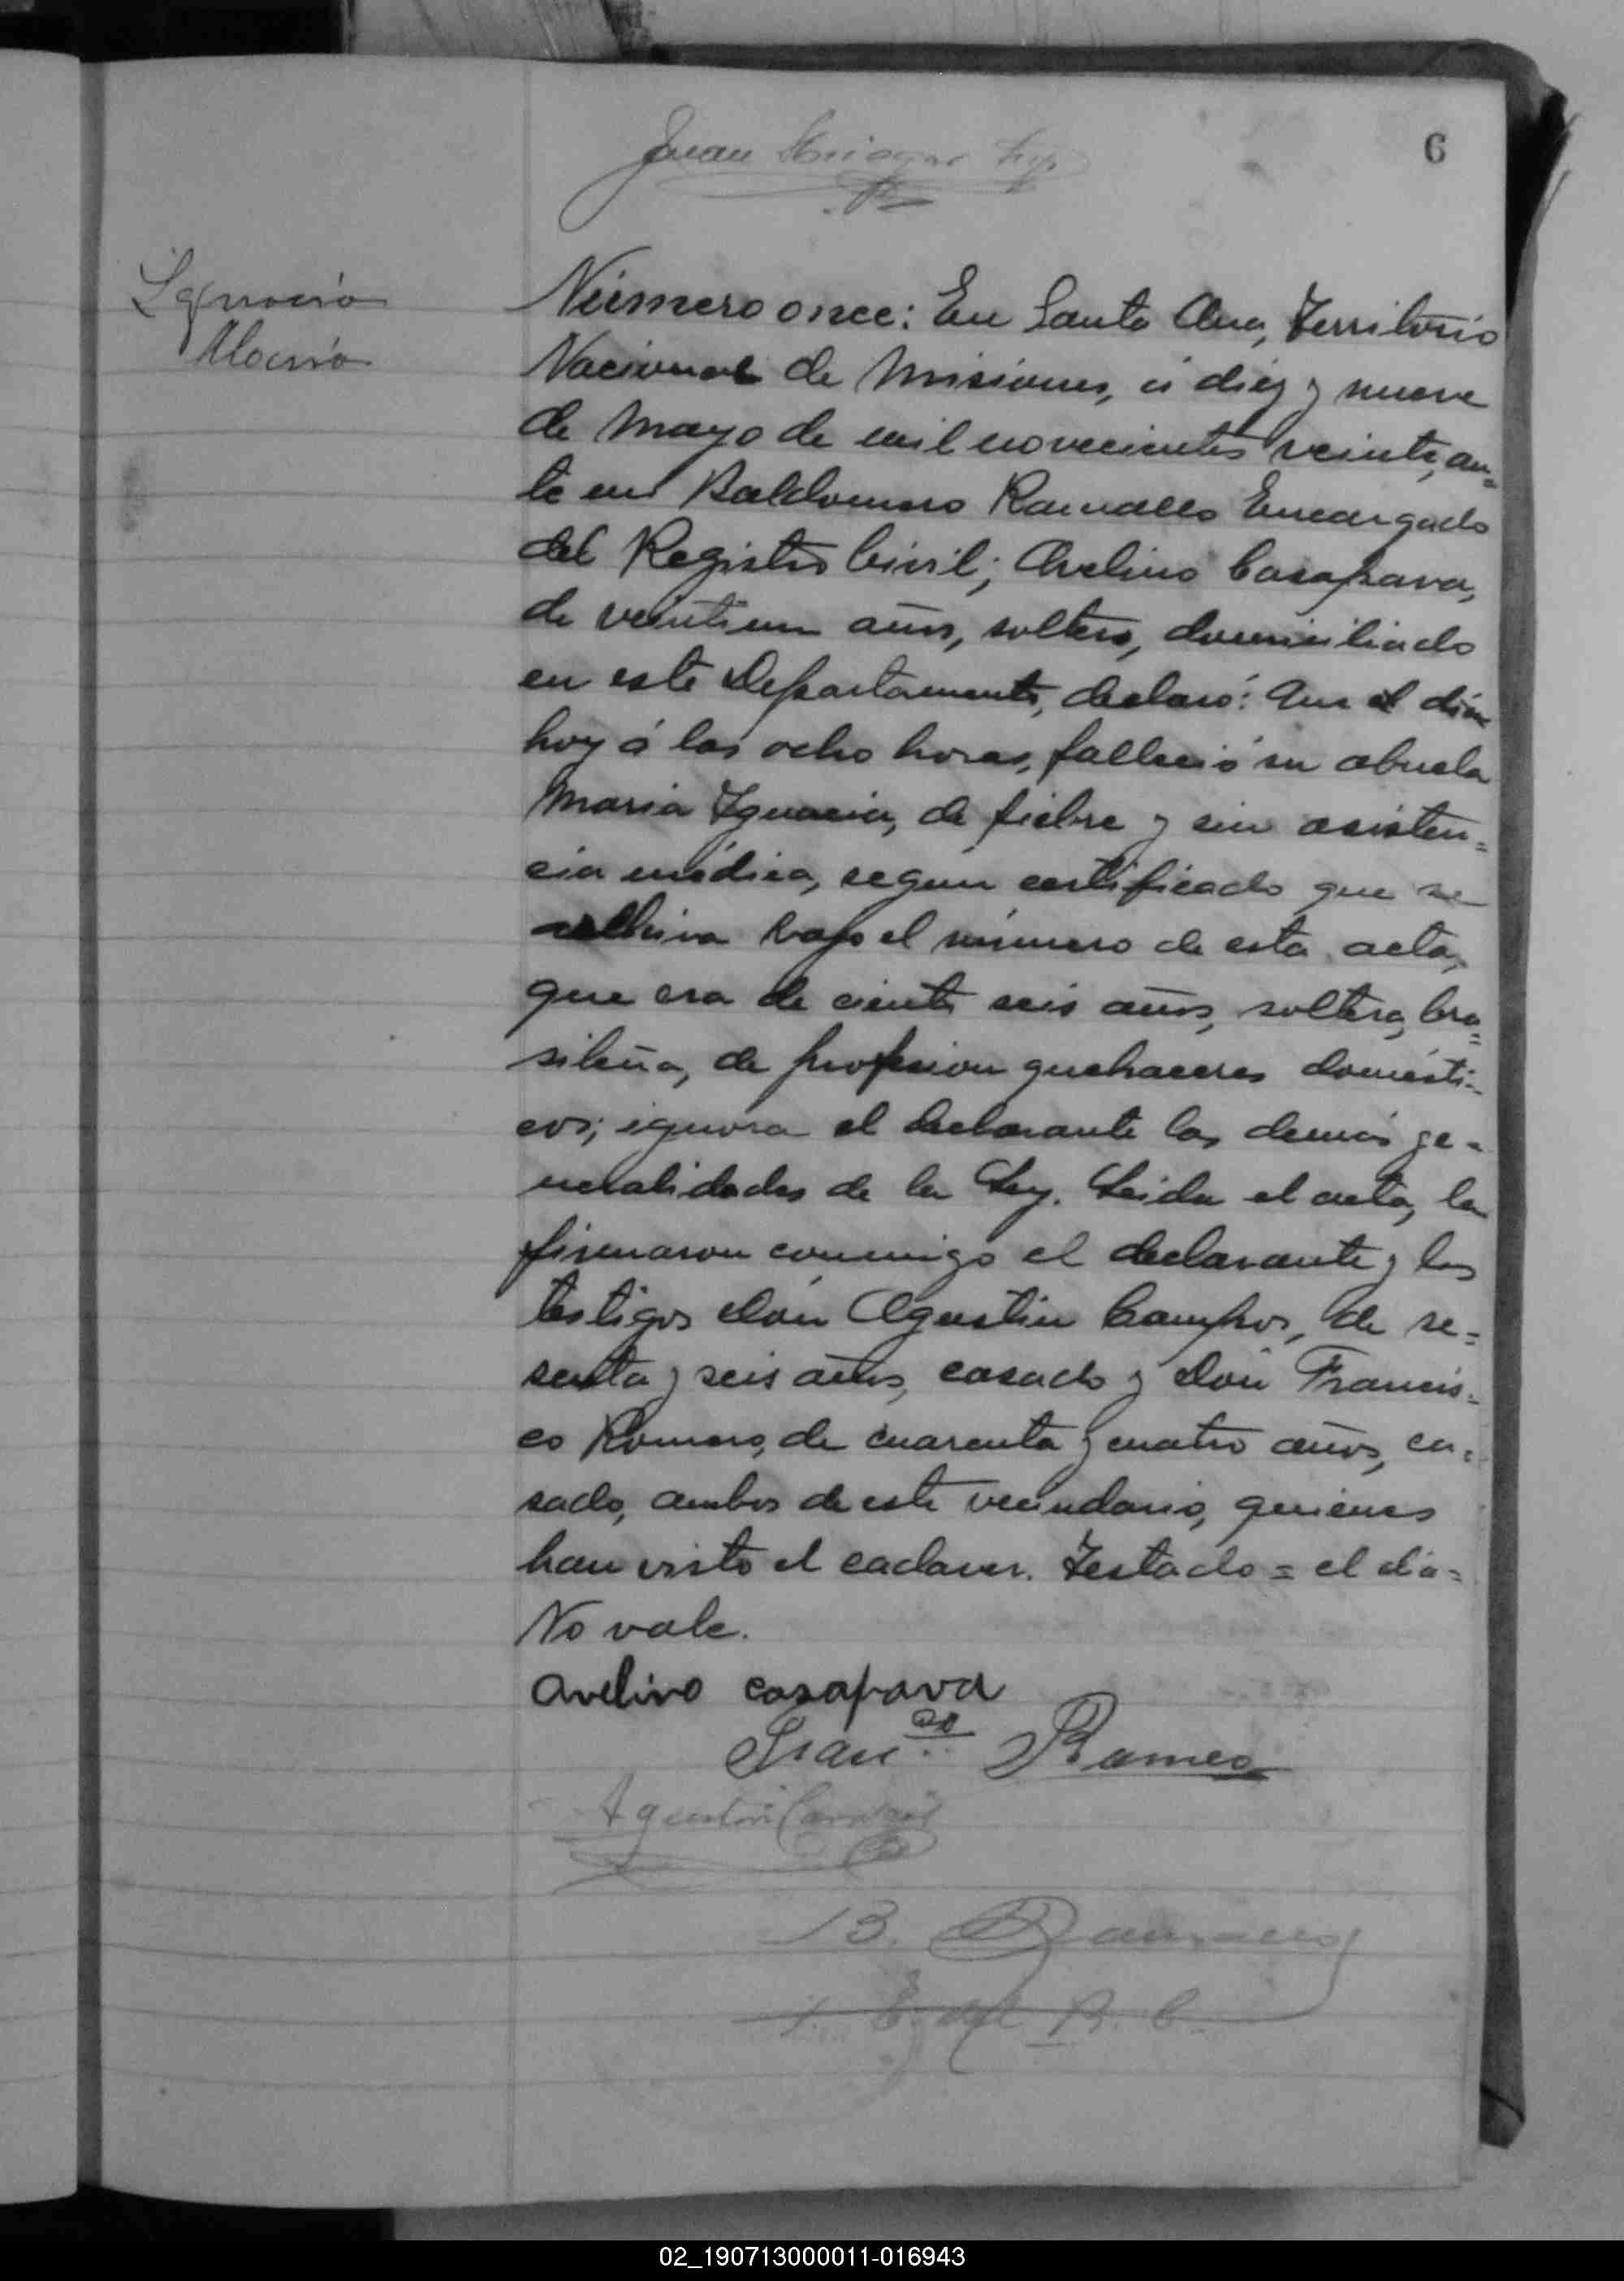 6
Juan
Ignacia
Maria
Número once: En Santa Ana, Territorio
Nacional de Misiones, á diez y nueve
de Mayo de mil novecientos veinte, an=
te mi Baldomero Ramallo Encargado
del Registro Civil; Avelino Casapava,
de veintiun años, soltero, domiciliado
en este Departamento, declaró: Que el dia
hoy á las ocho horas, falleció su abuela
Maria Ignacia, de fiebre y sin asisten=
cia médica, segun certificado que se
archiva bajo el número de esta acta,
que era de ciento seis años, soltera, bra=
sileña, de profesion quehaceres domésti=
cos; ignora el declarante las demás ge=
neralidades de la Ley. Leida el acta, la
firmaron conmigo el declarante y los
testigos Don Agustin Campos, de se=
senta y seis años, casado y Don Francis=
co Romero, de cuarenta y cuatro años, ca=
sado, ambos de este vecindario, quienes
han visto el cadaver. Testado = el dia =
No vale.
avelino casapava
Franco Romero
Agustin
B. Ramallo
E. del R. C.
02_190713000011-016943